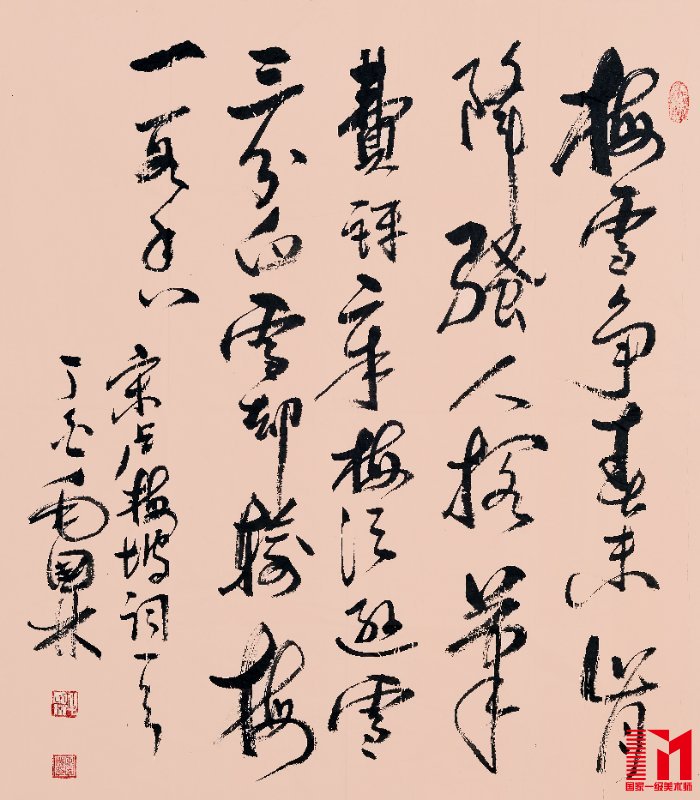 梅雪争春未肯
降骚人搁筆
費評章梅须逊雪
三分白雪却输梅
一段香
宋卢梅坡词一首
丁酉毛國林
国家一级美术师